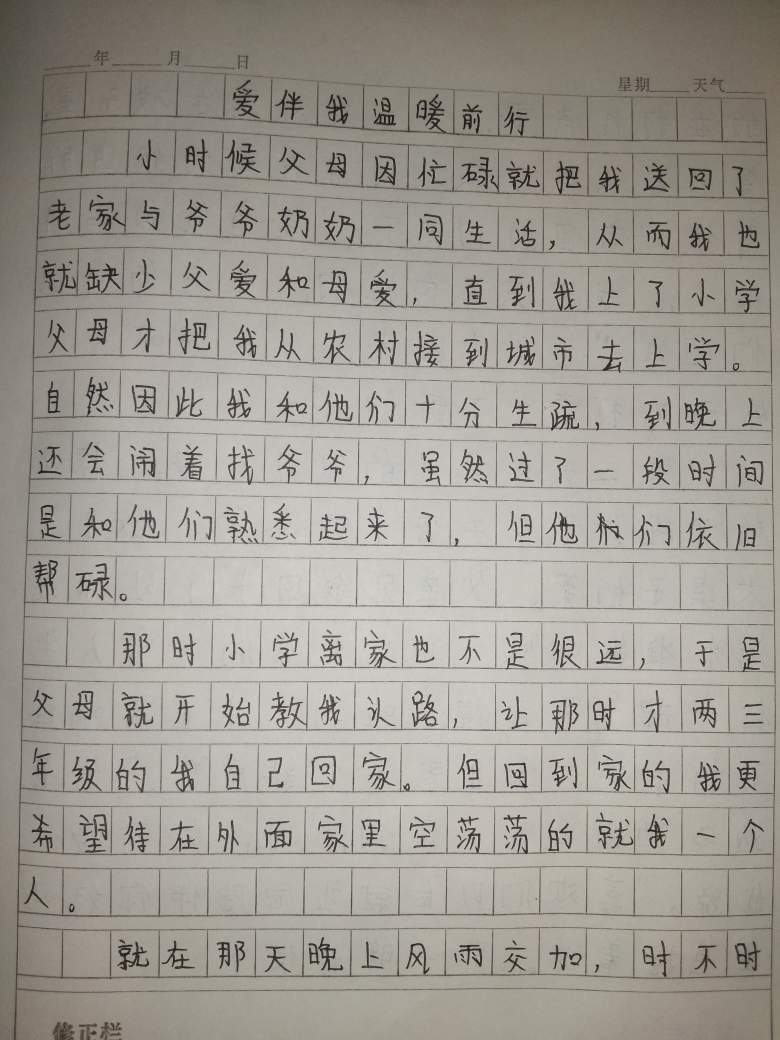 年 月 日
星期 天气
爱伴我温暖前行
小时候父母因忙碌就把我送回了
老家与爷爷奶奶一同生活，从而我也
就缺少父爱和母爱，直到我上了小学
父母才把我从农村接到城市去上学。
自然因此我和他们十分生疏，到晚上
还会闹着找爷爷，虽然过了一段时间
是和他们熟悉起来了，但他们依旧
帮碌。
那时小学离家也不是很远，于是
父母就开始教我认路，让那时才两三
年级的我自己回家。但回到家的我更
希望待在外面家里空荡荡的就我一个
人。
就在那天晚上风雨交加，时不时
修正栏